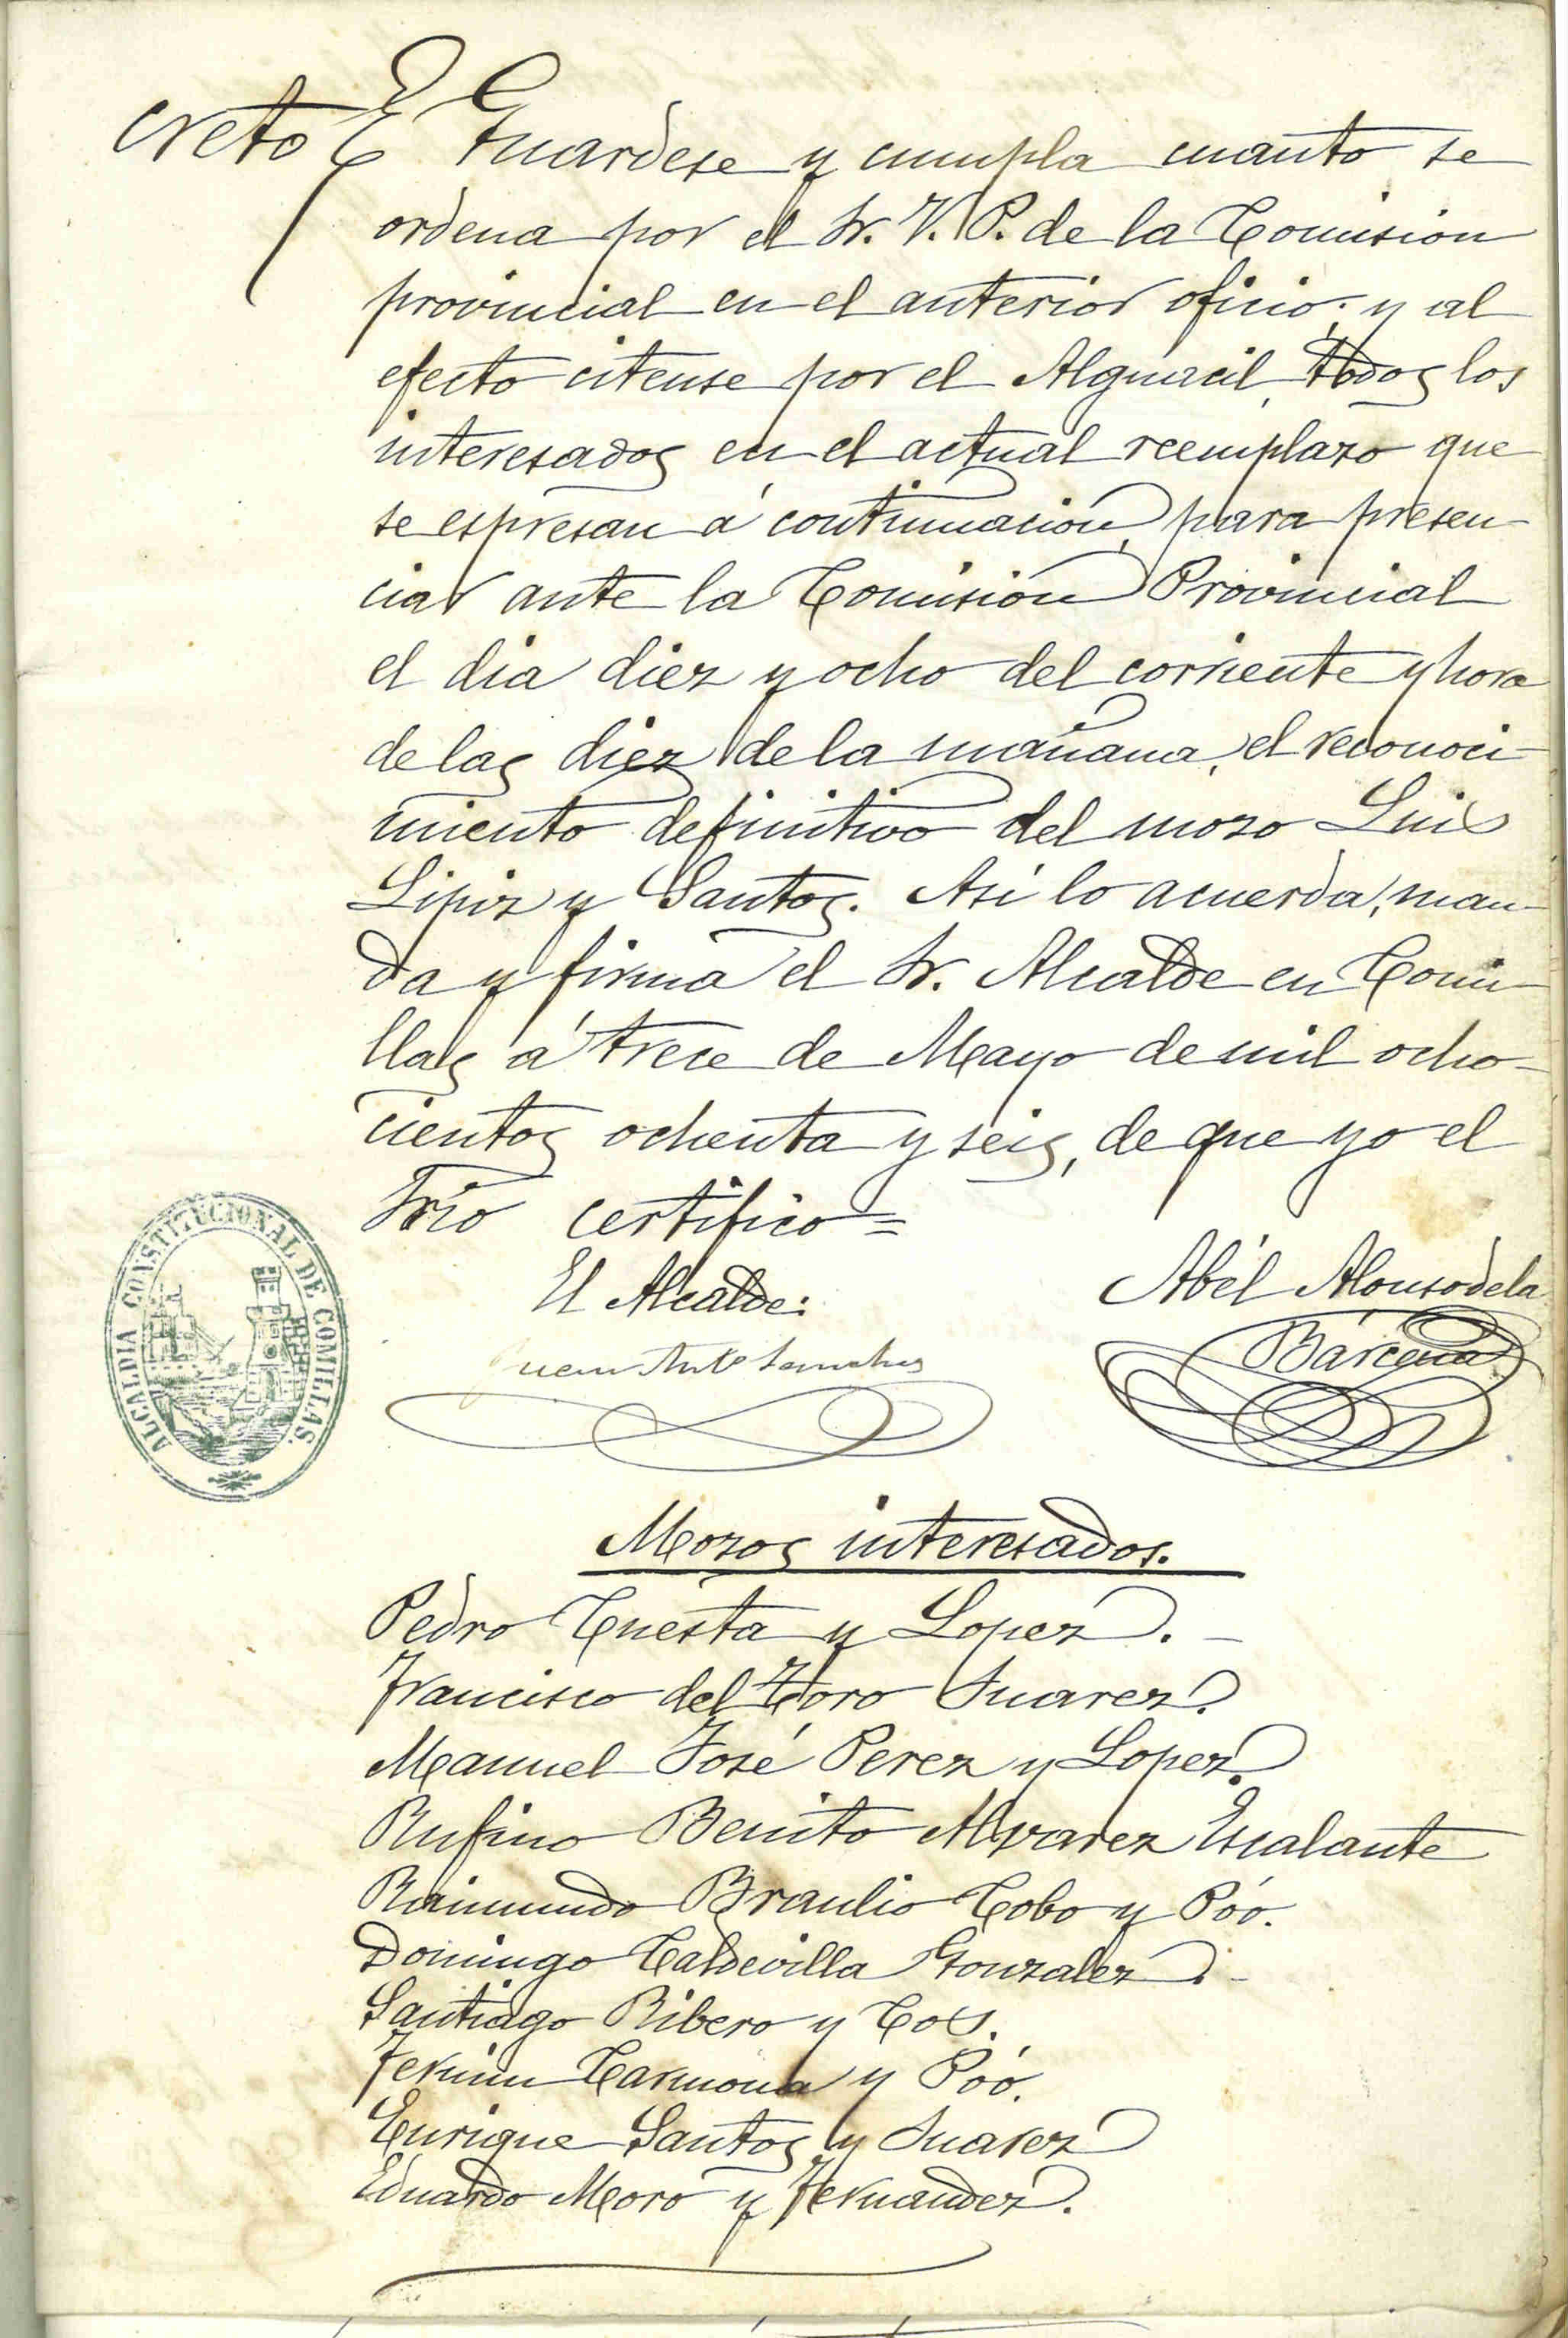 creto Guardese y cumpla cuanto se
ordena por el Sr. V. P. de la Comision
provincial en el anterior oficio; y al
efecto citense por el Alguacil, todos los
interesados en el actual reemplazo que
se espresan á continuacion, para presen-
ciar ante la Comisión Provincial
el dia diez y ocho del corriente y hora
de las diez de la mañana, el reconoci-
miento definitivo del mozo Luis
Lipiz y Santos. Asi lo acuerda, man-
da y firma el Sr. Alcalde en Comi-
llas á trece de Mayo de mil ocho-
cientos ochenta y seis, de que yo el
Srio certifico=
El Alcalde:
Abél Alonso de la
Bárcena
Juan Antº Sanchez
ALCALDIA CONSTITUCIONAL DE COMILLAS.
Mozos interesados.
Pedro Cuesta y Lopez.-
Francisco del Toro Suarez.
Manuel José Perez y Lopez.
Rufino Benito Alvarez Escalante
Raimundo Braulio Cobo y Póo.
Domingo Caldevilla Gonzalez.-
Santiago Ribero y Cos.
Fermin Carmona y Póo.
Enrique Santos y Suarez
Eduardo Moro y Fernandez.